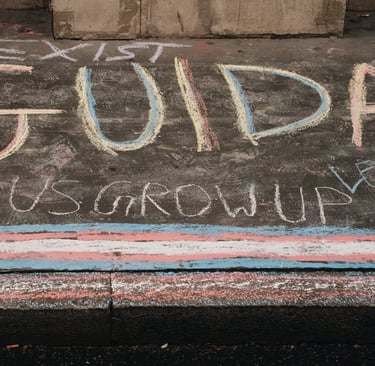 EXIST
JUIDA
US GROW UP LE